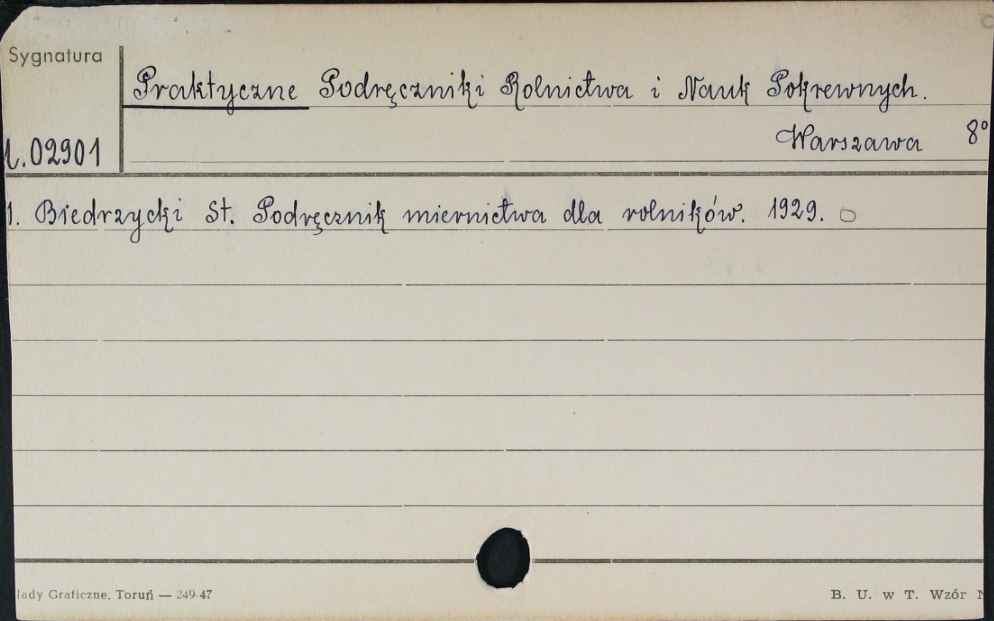 Sygnatura
Praktyczne Podręczniki Rolnictwa i Nauk Pokrewnych.
Warszawa 8°
02901
1. Biedrzycki St. Podręcznik miernictwa dla rolników. 1929.
łady Graficzne, Toruń — 249-47
B. U. w T. Wzór